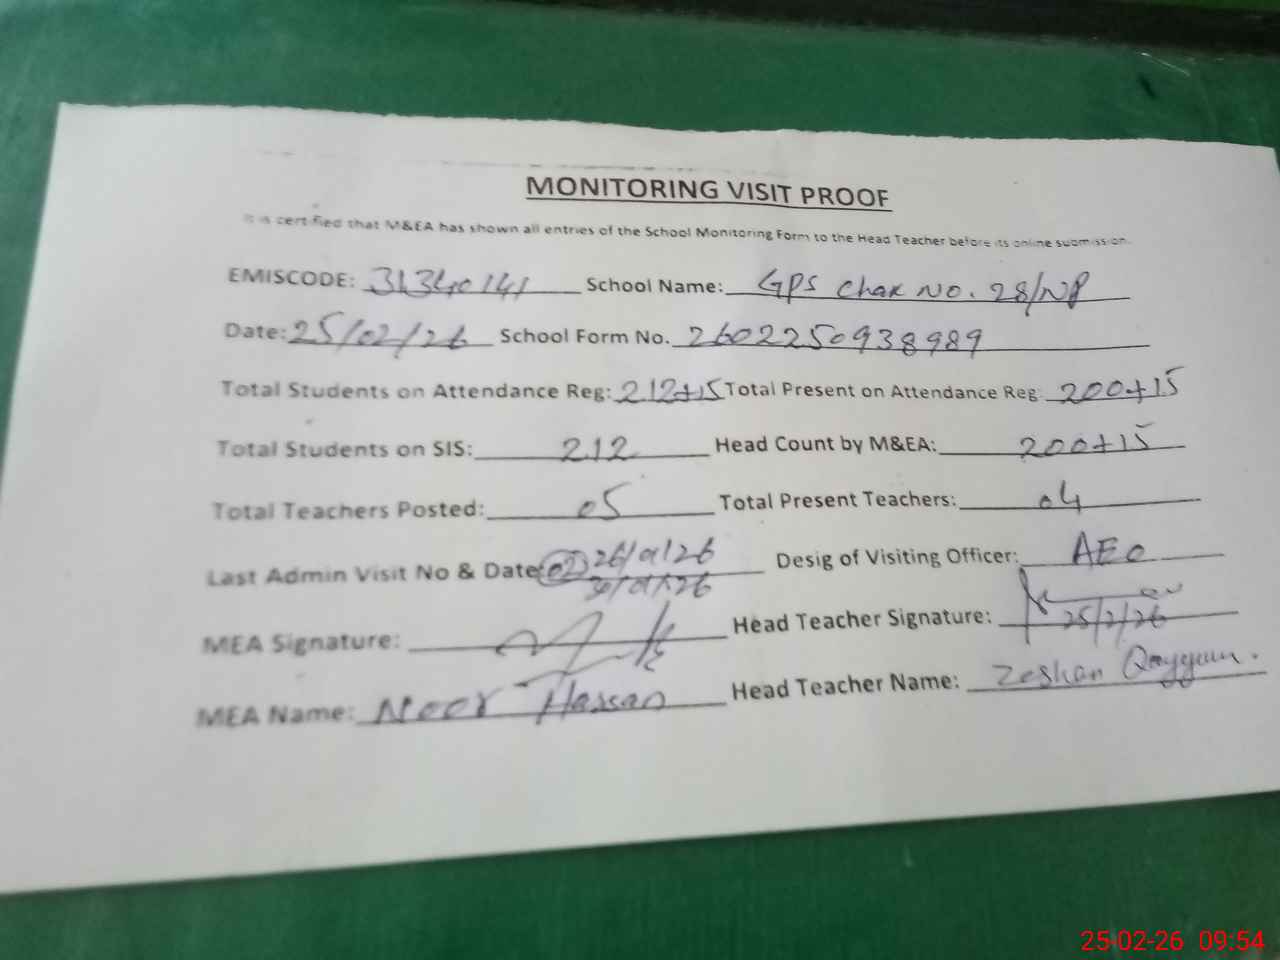 MONITORING VISIT PROOF
It is certified that M&EA has shown all entries of the School Monitoring Form to the Head Teacher before its online submission.
EMISCODE: 31340141 School Name: GPS Chak No. 28/NP
Date: 25/02/26 School Form No. 2602250938989
Total Students on Attendance Reg: 212+15 Total Present on Attendance Reg: 200+15
Total Students on SIS: 212 Head Count by M&EA: 200+15
Total Teachers Posted: 05 Total Present Teachers: 04
Last Admin Visit No & Date: 02 26/01/26 Desig of Visiting Officer: AEO
30/01/26
MEA Signature: Head Teacher Signature: 25/2/26
MEA Name: Noor Hassan Head Teacher Name: Zeshan Qayyum.
25-02-26 09:54